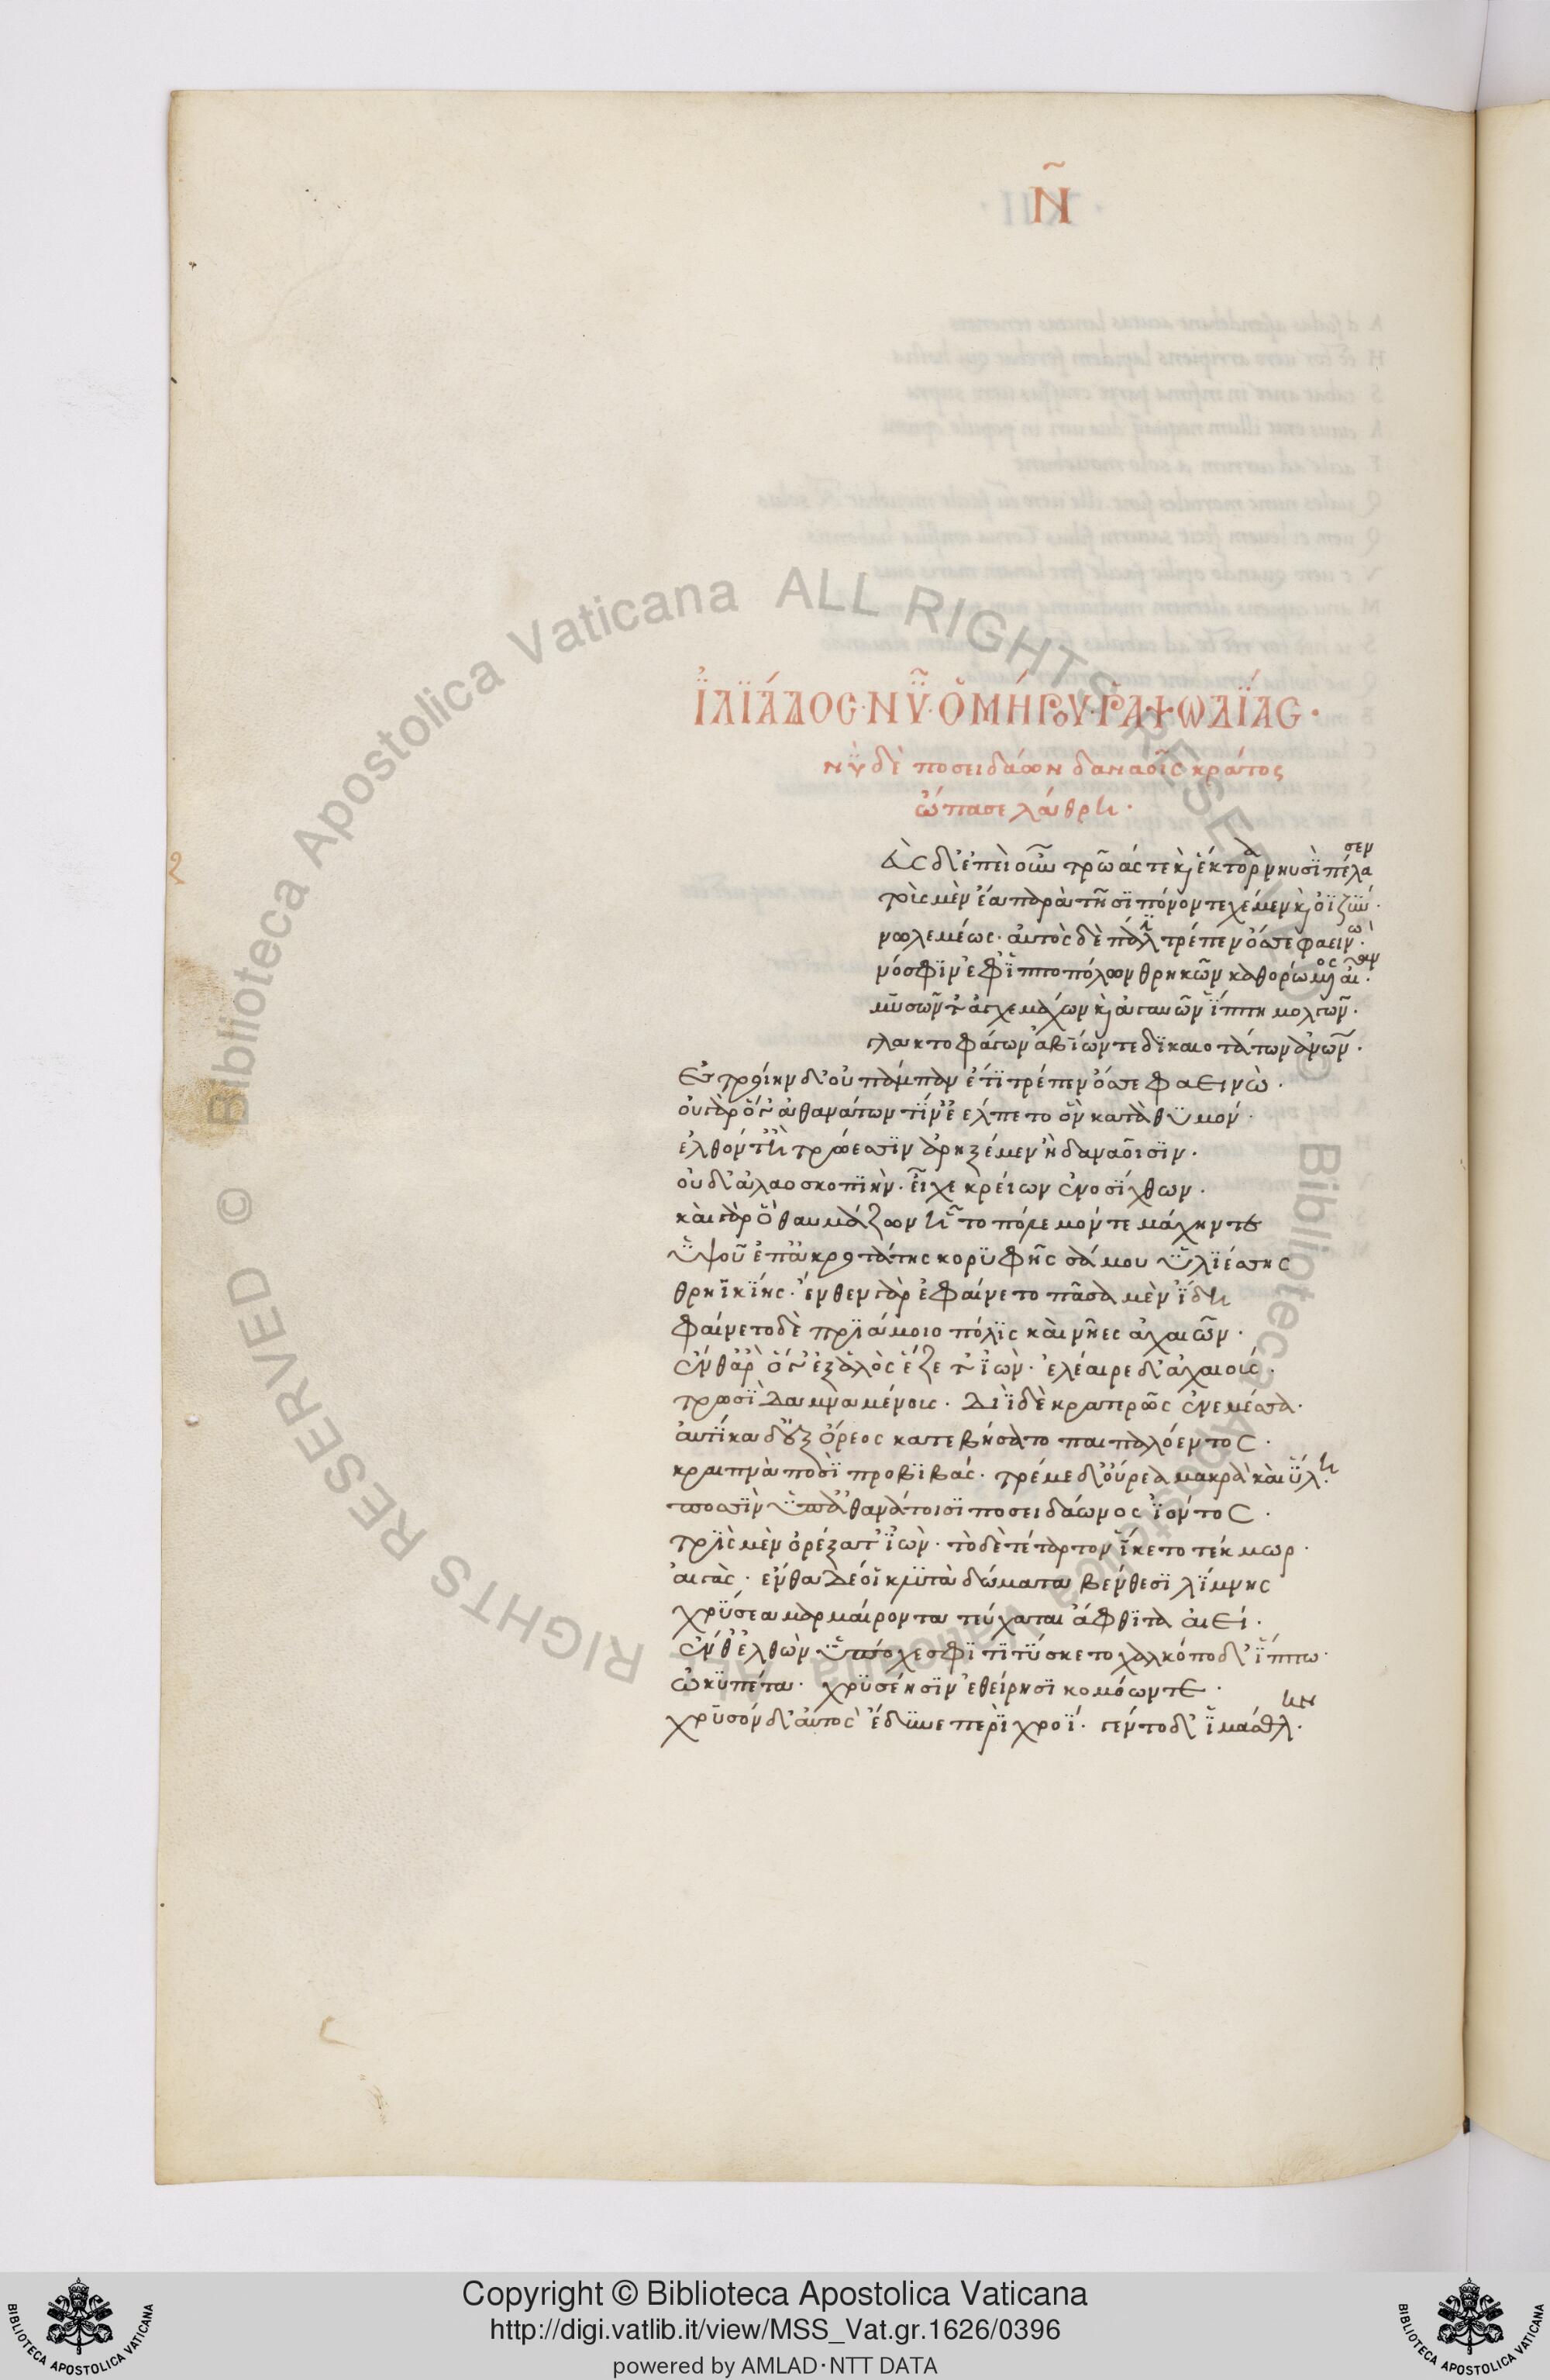 Ν̃
ἸΛΙΆΔΟΣ· ΝΥ͂· ὉΜΉΡΟΥ· ῬΑΨΩΔΊΑΣ·
νῦ δὲ ποσειδάων δαναοῖς κράτος
ὤπασε λάθρη·
Ζὲς δ' ἐπεὶ οὖν τρῶάς τε καὶ ἕκτορα νηυσὶ πέλασεν
τρὶς μὲν ἔα παρὰ τῆσι πόνον τεχέμεν καὶ ὀϊζὺν·
νωλεμέως· αὐτὸς δὲ πάλιν τρέπεν ὄσσε φαεινώ·
νόσφιν ἐφ' ἱπποπόλων θρηκῶν καθορώμενος αἶαν·
μυσῶν τ' ἀγχεμάχων καὶ ἀγαυῶν ἱππημολγῶν·
γλακτοφάγων ἀβίων τε δικαιοτάτων ἀνων·
ἐς τροίην δ' οὐ πάμπαν ἔτι τρέπεν ὄσσε φαεινὼ·
οὐ γὰρ ὅγ' ἀθανάτων τίν' ἐέλπετο ὃν κατὰ θυμόν·
ἐλθόντ' ἢ τρώεσσιν ἀρηξέμεν ἢ δαναοῖσιν·
οὐδ' ἀλαοσκοπιὴν· εἶχε κρείων ἐνοσίχθων·
καὶ γὰρ ὃ θαυμάζων ἧστο πόλεμόν τε μάχην τε
ὑψοῦ ἐπ' ἀκροτάτης κορυφῆς σάμου ὑληέσσης
θρηϊκίης· ἔνθεν γὰρ ἐφαίνετο πᾶσα μὲν ἴδη
φαίνετο δὲ πριάμοιο πόλις καὶ νῆες ἀχαιῶν·
ἔνθ' ἄρ' ὅγ' ἐξ ἁλὸς ἕζετ' ἰὼν· ἐλέαιρε δ' ἀχαιούς·
τρωσὶ δαμναμένους· Διῒ δὲ κρατερῶς ἐνεμέσσα·
αὐτίκα δ' οὐξ ὄρεος κατεβήσατο παιπαλόεντος·
κραιπνὰ ποσὶ προβιβάς· τρέμε δ' οὔρεα μακρὰ καὶ ὕλη·
ποσσὶν ὑπ' ἀθανάτοισι ποσειδάωνος ἰόντος·
τρὶς μὲν ὀρέξατ' ἰὼν· τὸ δὲ τέτορτον ἵκετο τέκμωρ·
αἰγὰς· ἔνθα δέ οἱ κλυτὰ δώματα βένθεσι λίμνης
χρύσεα μαρμαίροντα τεύχαται ἄφθιτα αἰεί·
ἔνθ' ἐλθὼν ὑπ' ὄχεσφι τιτύσκετο χαλκόποδ' ἵππω·
ὠκυπέτα· χρυσέησιν ἐθείρησι κομόωντε·
χρυσὸν δ' αὐτὸς ἔδυνε περὶ χροΐ· γέντο δ' ἱμάσθλην·
Copyright © Biblioteca Apostolica Vaticana
http://digi.vatlib.it/view/MSS_Vat.gr.1626/0396
powered by AMLAD·NTT DATA
© Biblioteca Apostolica Vaticana ALL RIGHTS RESERVED
© Biblioteca Apostolica Vaticana ALL RIGHTS RESERVED
BIBLIOTECA APOSTOLICA VATICANA
BIBLIOTECA APOSTOLICA VATICANA